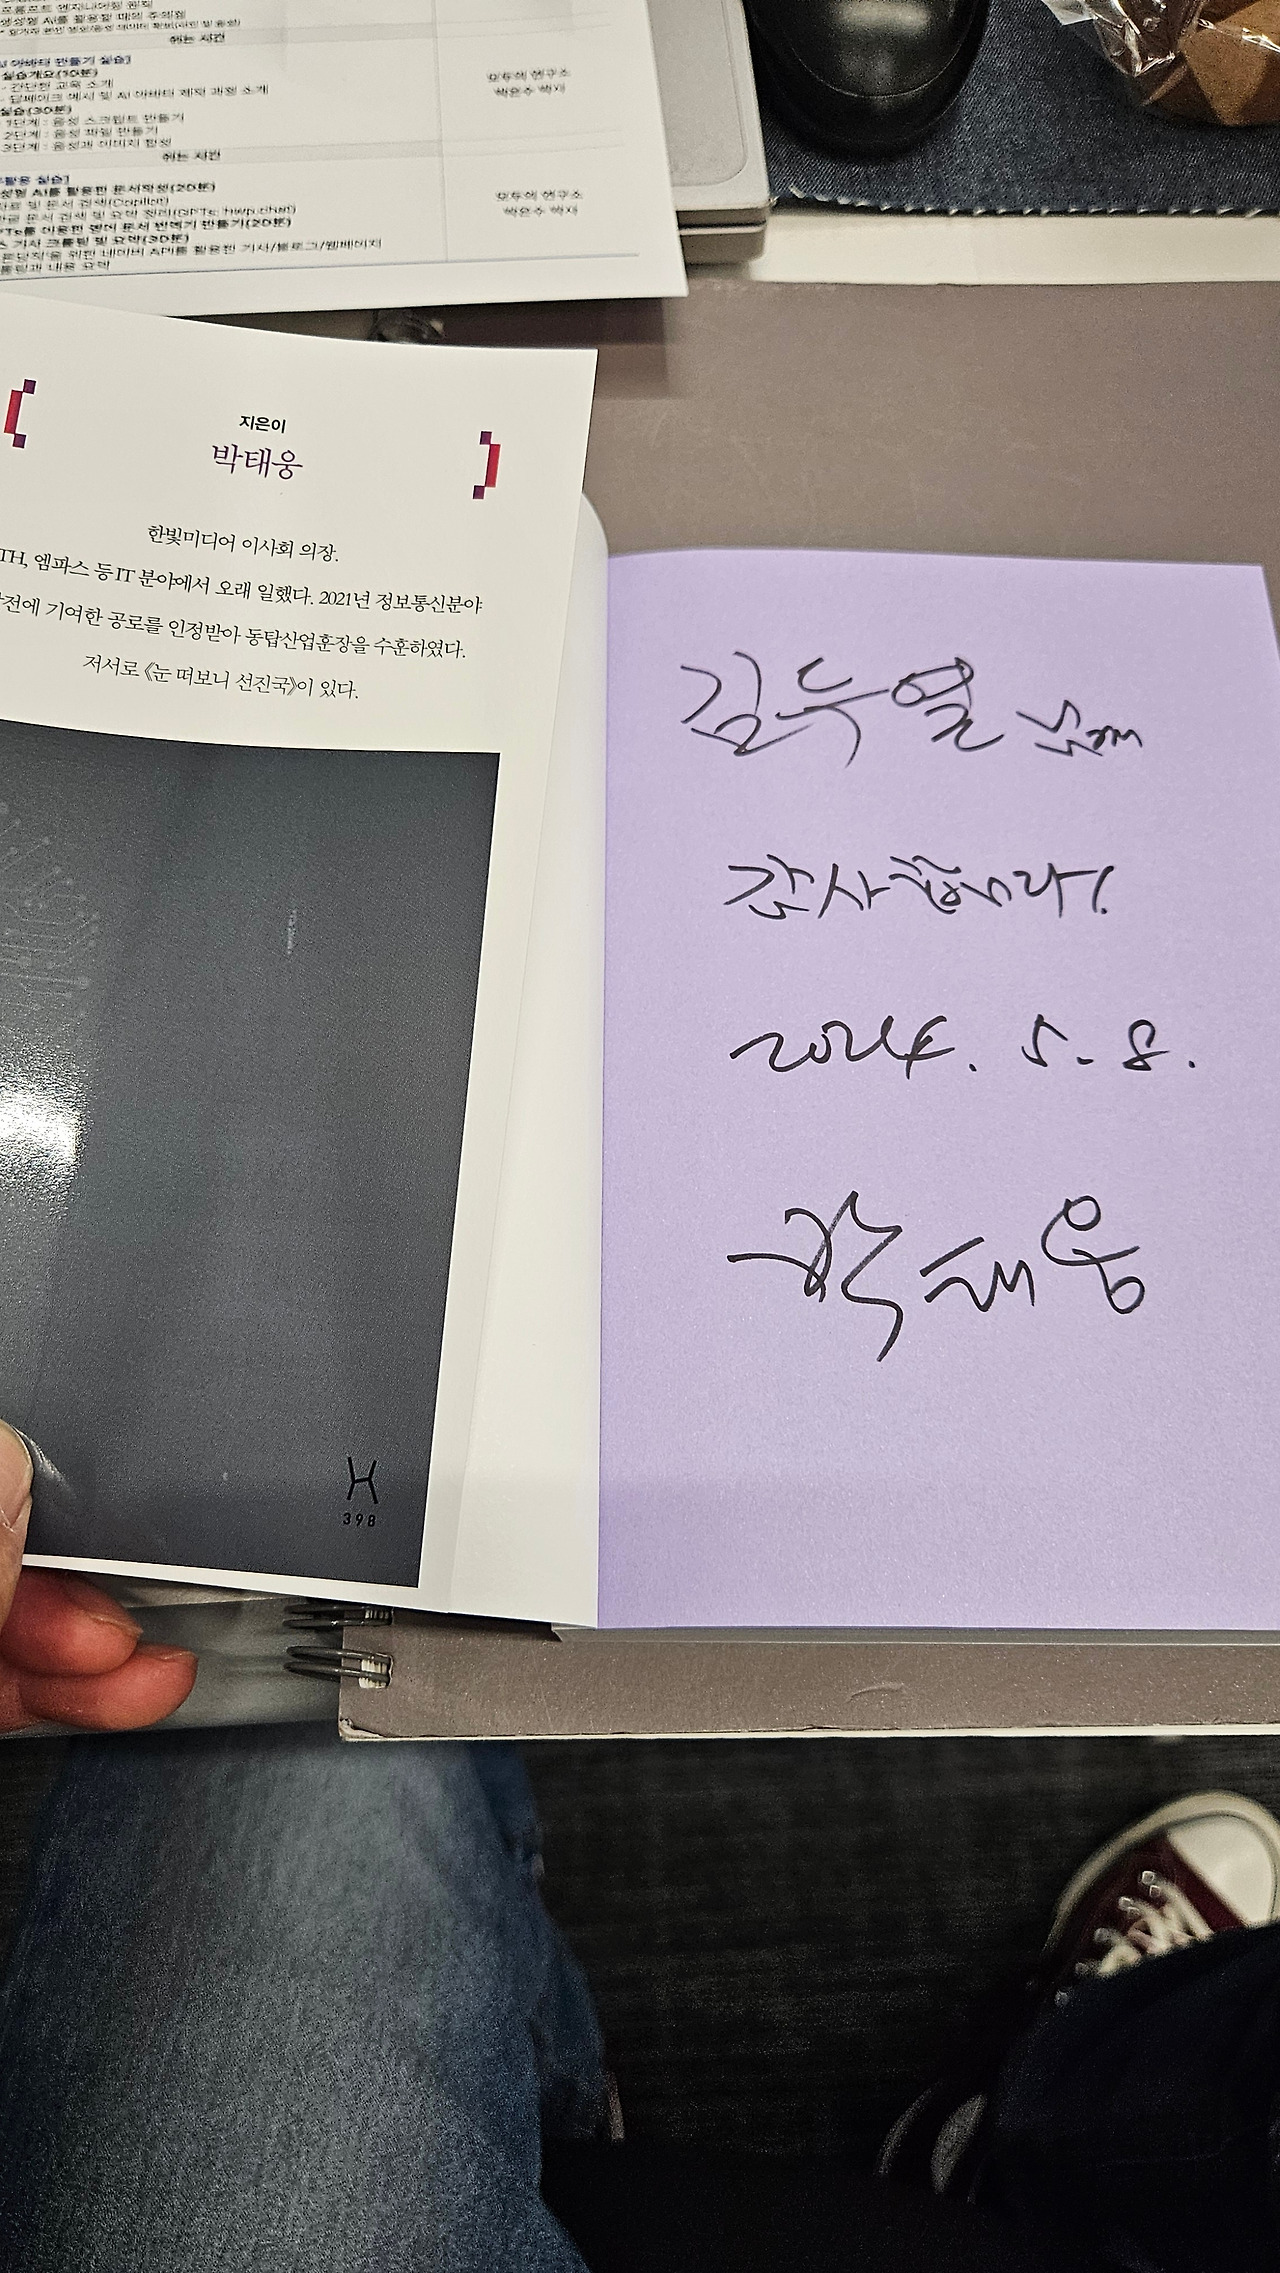 프롬프트 엔지니어링 원칙
생성형 AI를 활용할 때의 주의점
쉬는 시간
AI 아바타 만들기 실습]
실습개요(10분)
- 간단한 교육 소개
- 딥페이크 예시 및 AI 아바타 제작 과정 소개
실습(30분)
1단계 : 음성 스크립트 만들기
2단계 : 음성 파일 만들기
3단계 : 음성과 이미지 합성
모두의 연구소
박은수 박사
쉬는 시간
활용 실습]
성형 AI를 활용한 문서작성(20분)
료 및 문서 검색(Copilot)
한글 문서 검색 및 요약 정리(GPTs: hwp.chat)
PTs를 이용한 영어 문서 번역기 만들기(20분)
스 기사 크롤링 및 요약(30분)
위한 네이버 API를 활용한 기사/블로그/웹페이지
롤링과 내용 요약
모두의 연구소
박은수 박사
지은이
박태웅
한빛미디어 이사회 의장.
TH, 엠파스 등 IT 분야에서 오래 일했다. 2021년 정보통신분야
발전에 기여한 공로를 인정받아 동탑산업훈장을 수훈하였다.
저서로 《눈 떠보니 선진국》이 있다.
398
김두열 님께
감사합니다!
2024. 5. 8.
박태웅